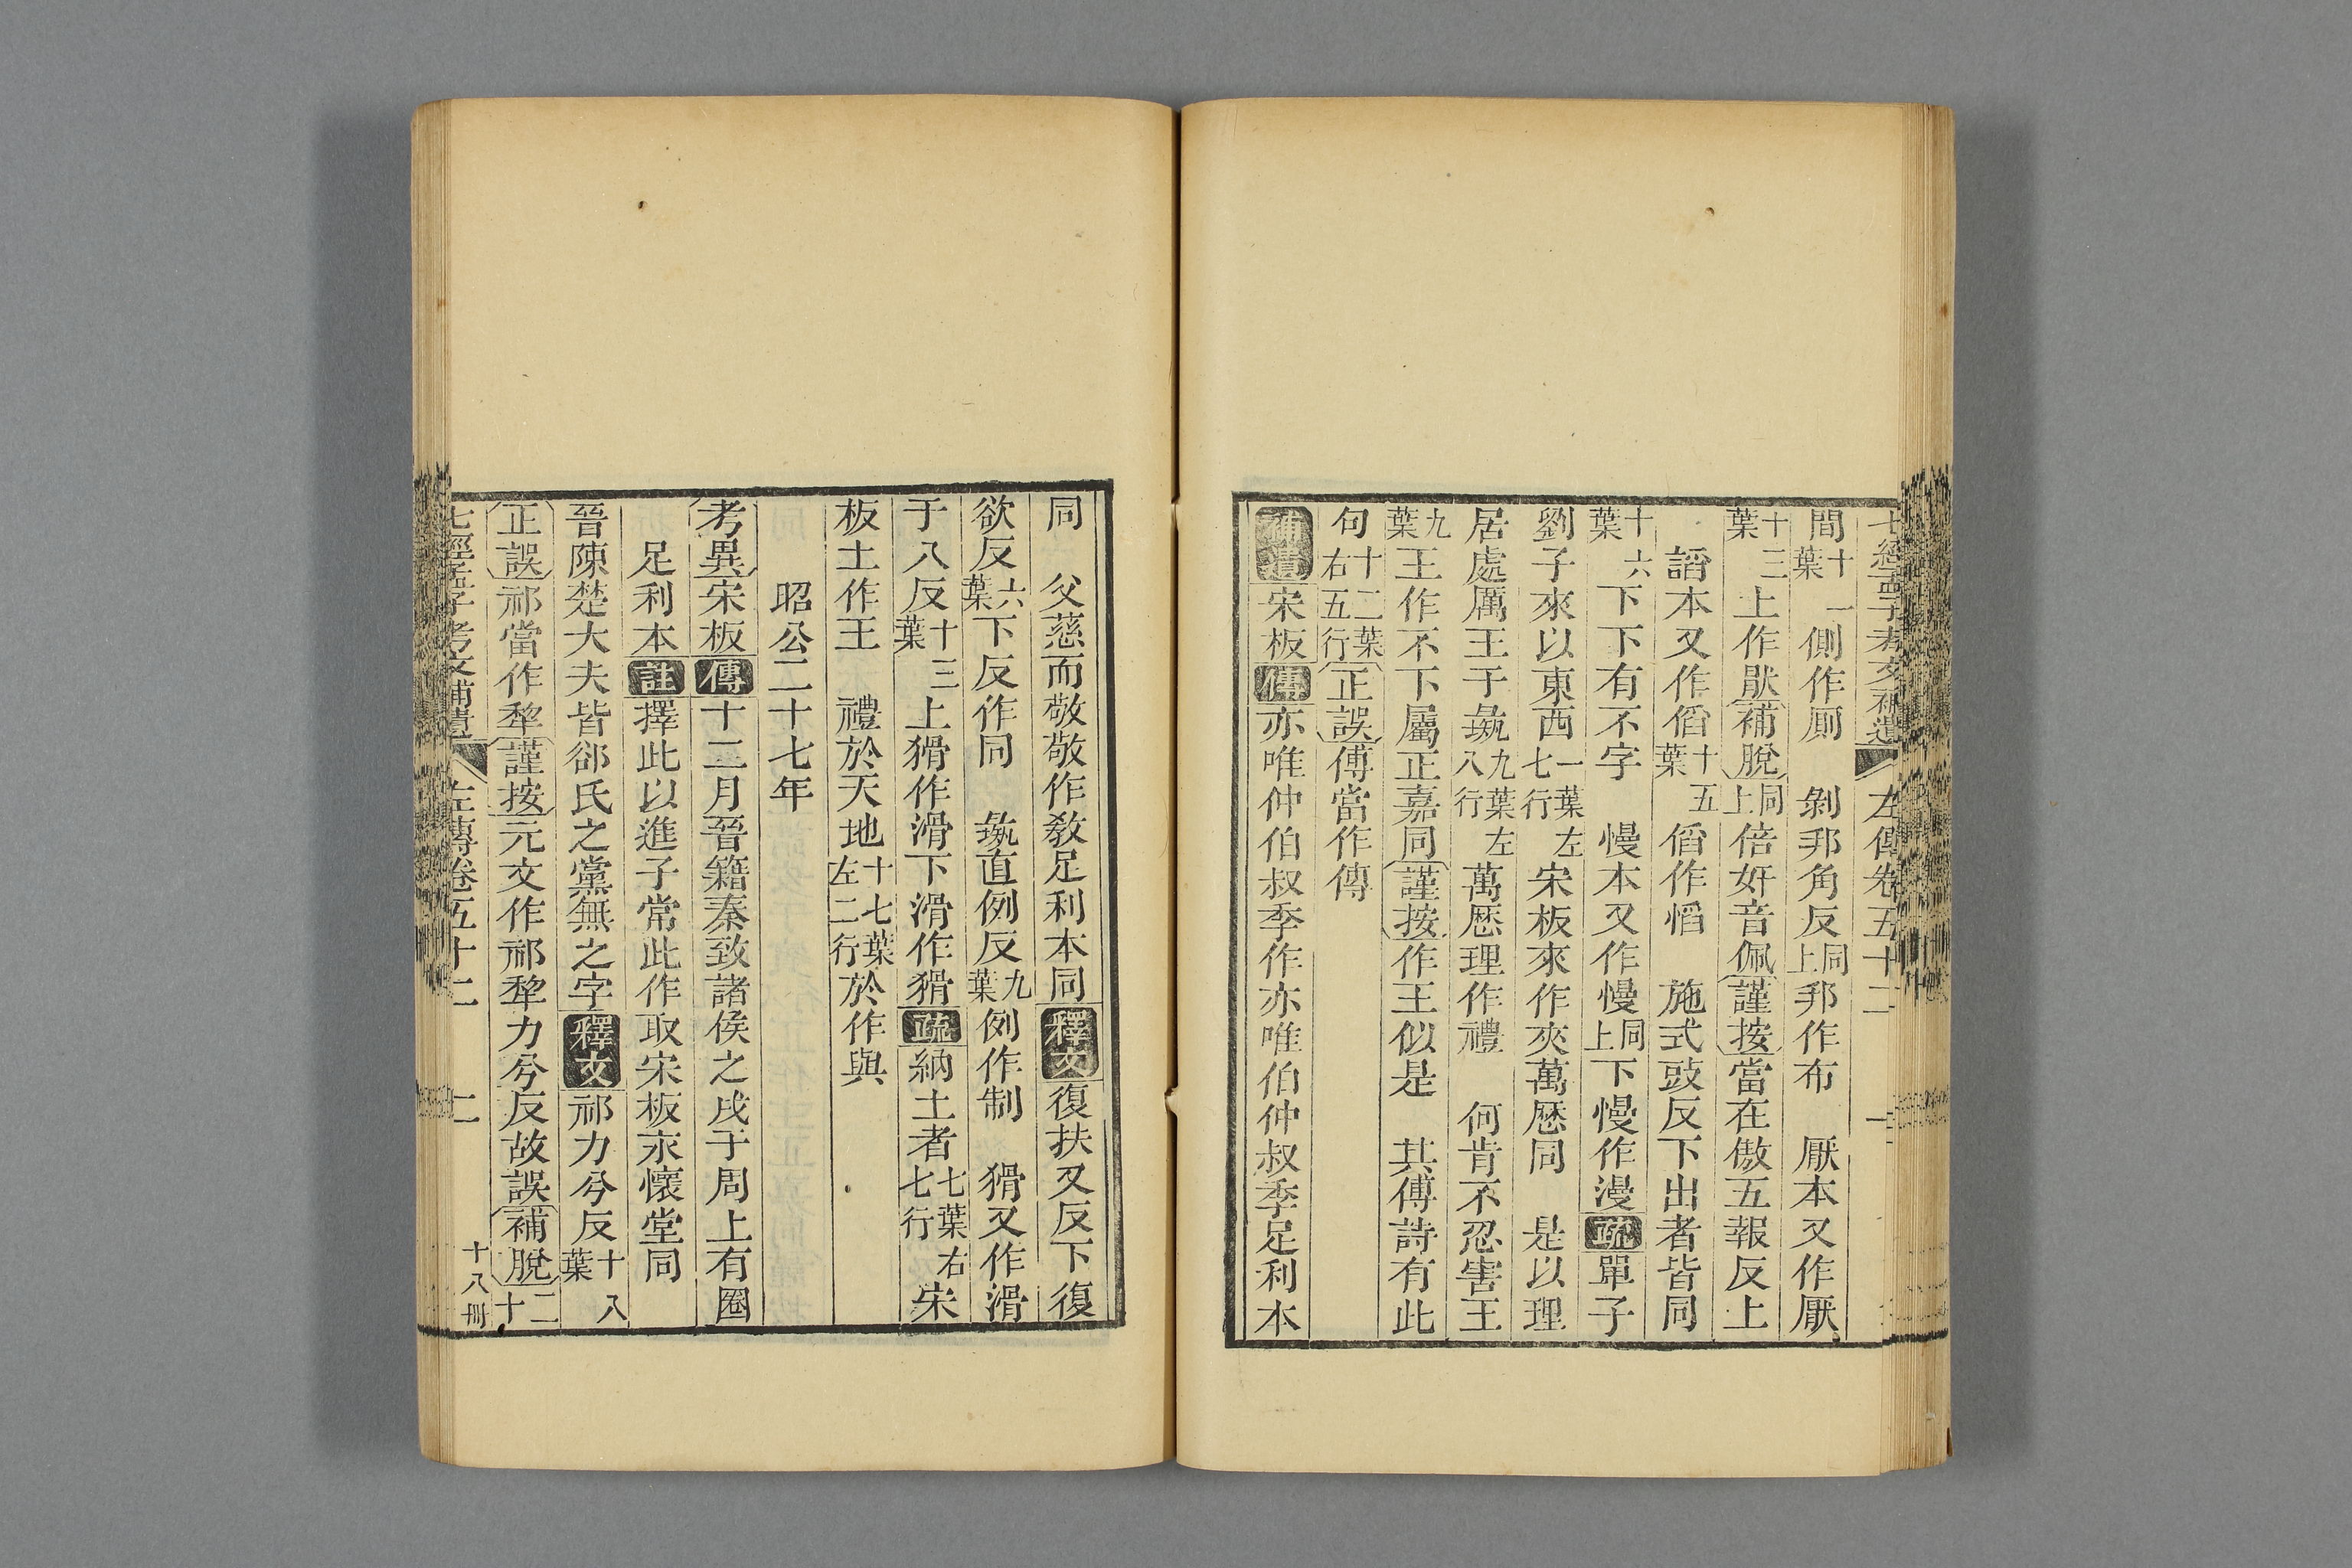 七經孟子考文補遺 左傳卷五十二
間十一葉側作厠 剝邦角反同上邦作布 厭本又作厭
十三葉上作猒補脫同上倍奸音佩謹按當在傲五報反上
謟本又作慆十五葉慆作慆 施式豉反下出者皆同
十六葉下下有不字 慢本又作慢同上下慢作漫疏單子
劉子來以東西一葉左七行宋板來作夾萬厯同 是以理
居處厲王于彘九葉左八行萬厯理作禮 何肯不忍害王
九葉王作不下屬正嘉同謹按作王似是 其傅詩有此
句十二葉右五行正誤傅當作傳
補遺宋板傳亦唯仲伯叔季作亦唯伯仲叔季足利本
同 父慈而敬敬作教足利本同釋文復扶又反下復
欲反六葉下反作同 彘直例反九葉例作制 猾又作滑
于八反十三葉上猾作滑下滑作猾疏納王者七葉右七行宋
板土作王 禮於天地十七葉左二行於作與
昭公二十七年
考異宋板傳十二月晉籍秦致諸侯之戍于周上有圈
足利本註擇此以進子常此作取宋板永懷堂同
晉陳楚大夫皆郤氏之黨無之字釋文祁力兮反十八葉
正誤祁當作犂謹按元文作祁犂力兮反故誤補脫二十
七經孟子考文補遺 左傳卷五十二 二 十八冊